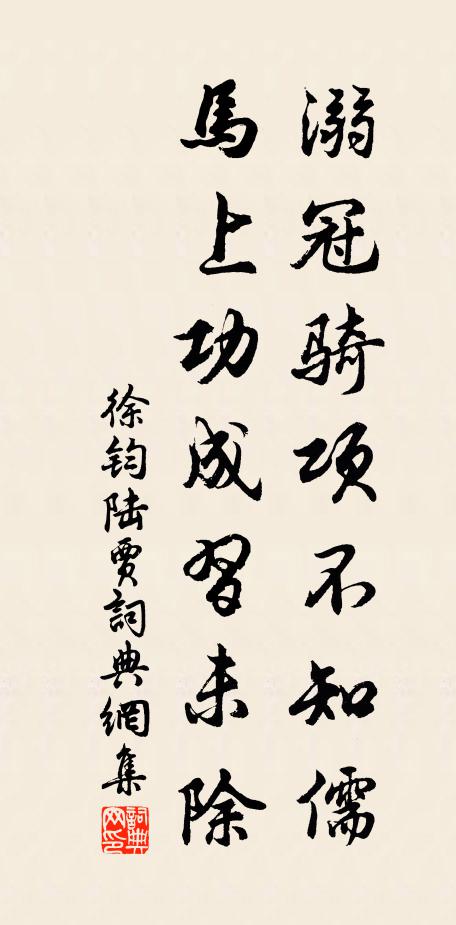 溺冠骑项不知儒
馬上功成習未除
徐鈞陆賈詞典網集
詞典
网印